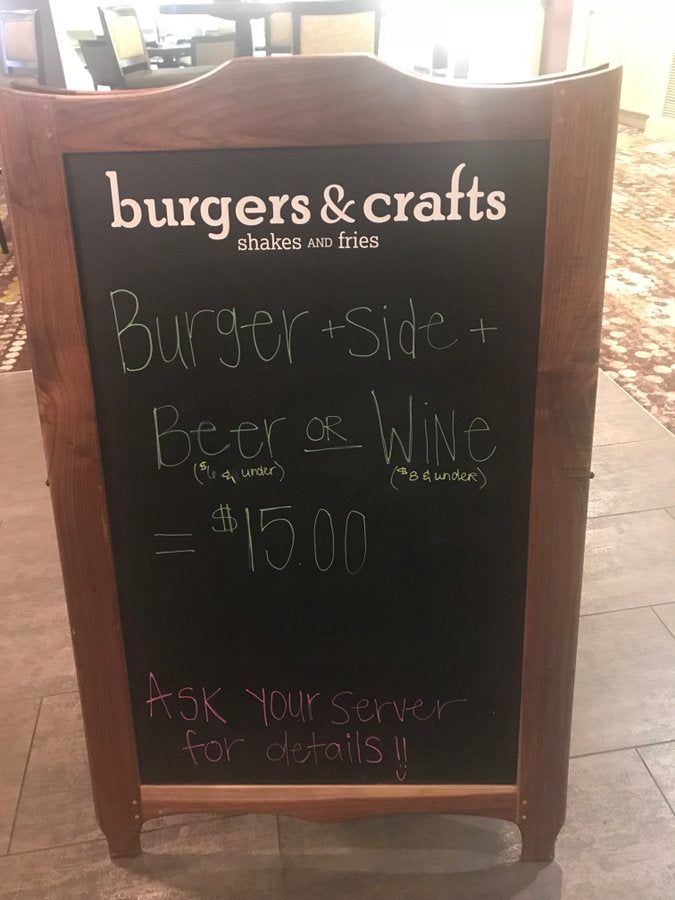 burgers & crafts
shakes AND fries
Burger + Side +
Beer OR Wine
($6 & under) ($8 & under)
= $15.00
Ask your server
for details!!